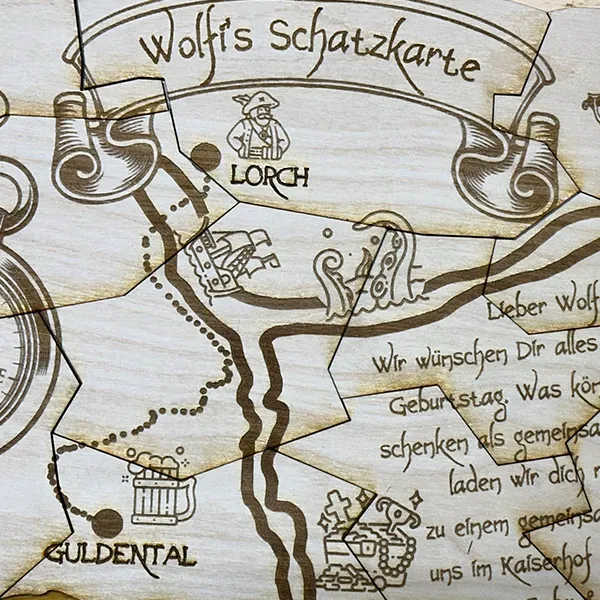 Wolfi's Schatzkarte
LORCH
GULDENTAL
Lieber Wolf
Wir wünschen Dir alles
Geburtstag. Was kön
schenken als gemeinsa
laden wir dich
zu einem gemeinsa
uns im Kaiserhof